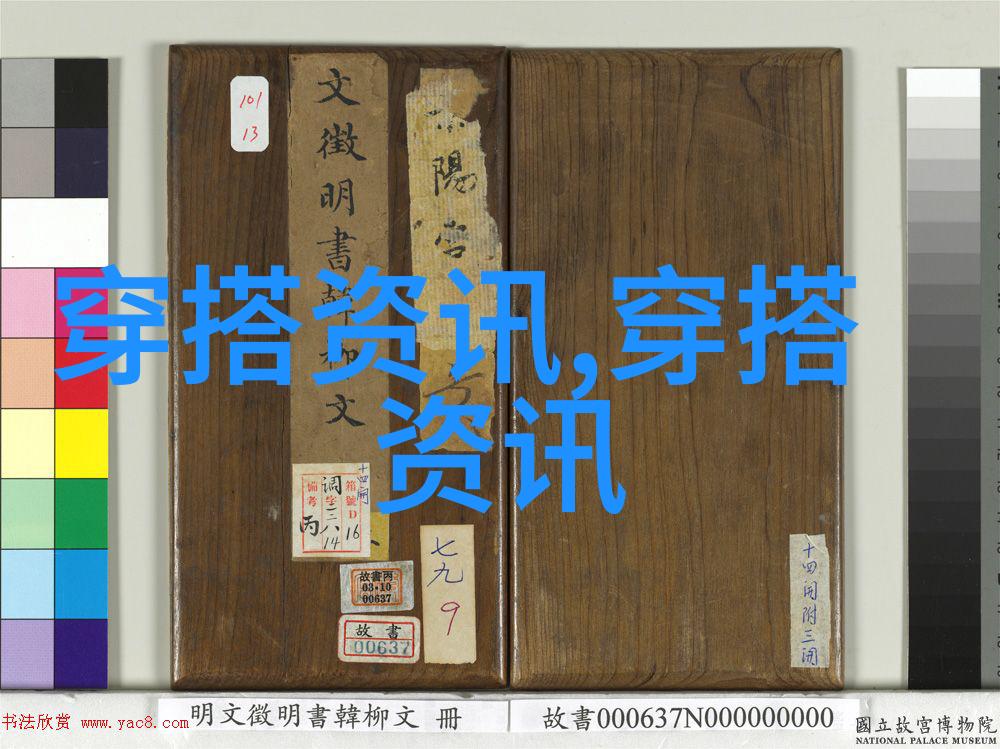 101
13
文徵明書韓柳文
陽
宮
穿搭资讯,穿搭
资讯
十四開
箱號D
16
調字三八
14
備考
丙
故書丙
03·10
00637
故書
00637
七九
9
十四開附三開
明文徵明書韓柳文 冊
故書000637N000000000
書法欣赏 www.yac8.com
國立故宮博物院
NATIONAL PALACE MUSEUM